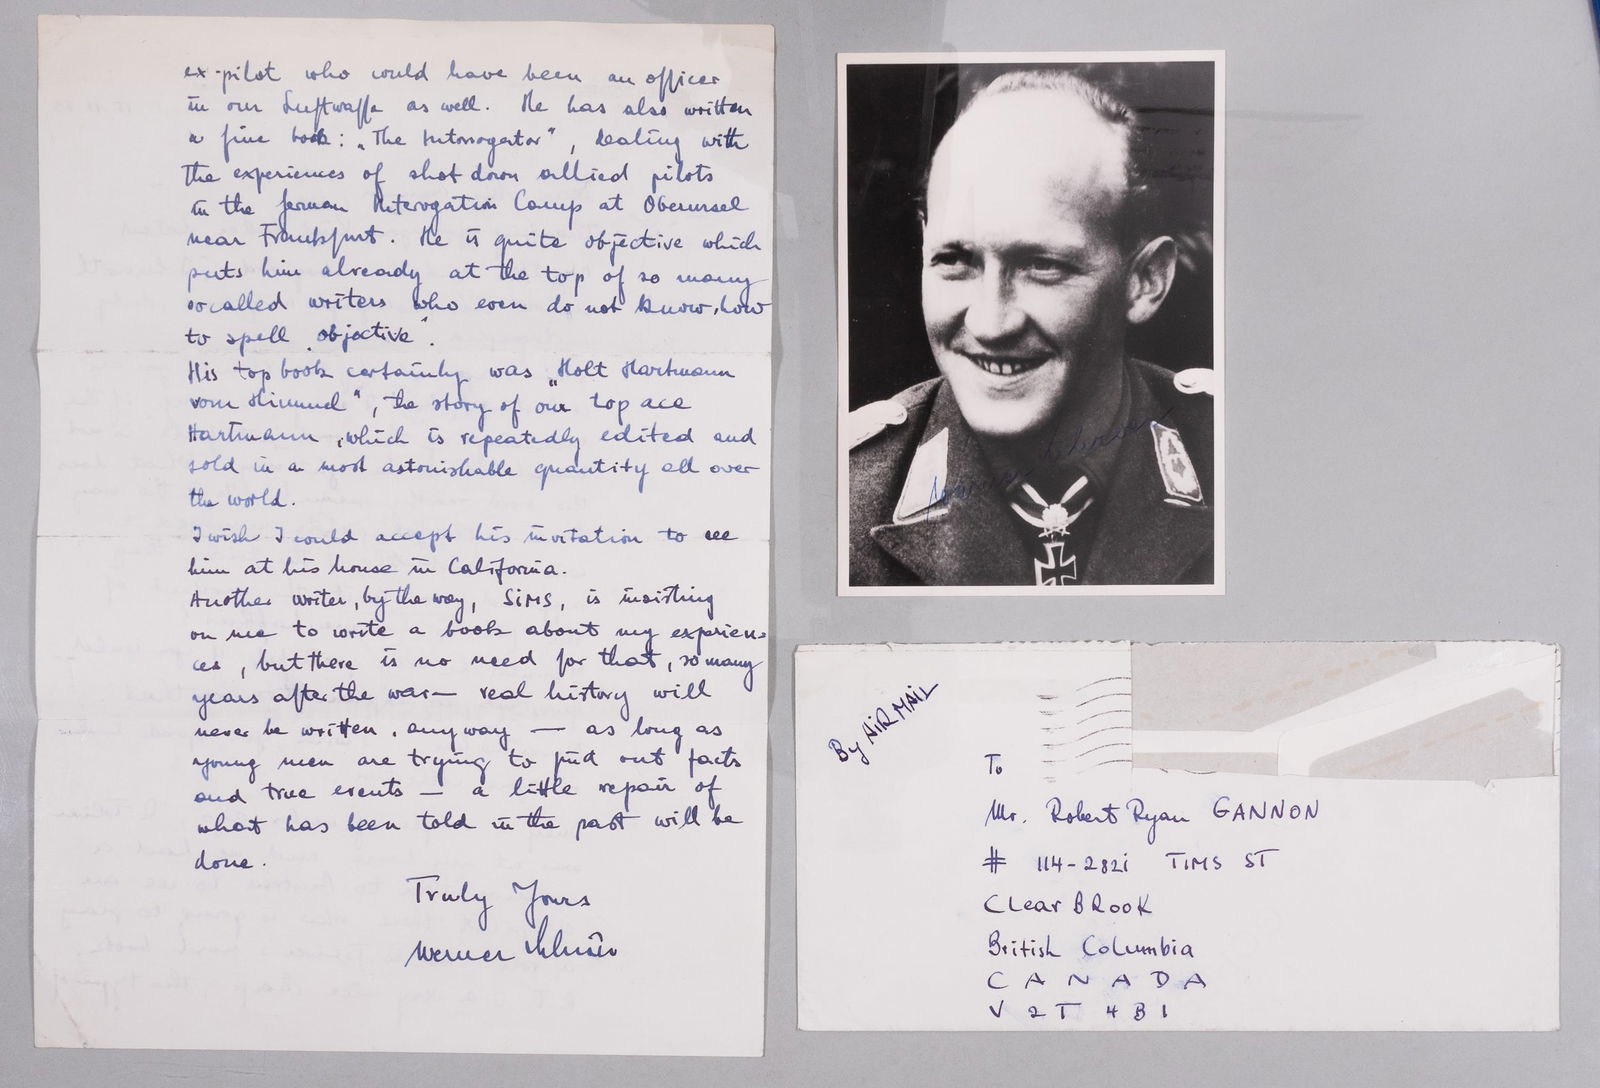 ex-pilot who could have been an officer
in our Luftwaffe as well. He has also written
a fine book: „The Interrogator", dealing with
the experiences of shot down allied pilots
in the german Interogation Camp at Oberursel
near Frankfurt. He is quite objective which
puts him already at the top of so many
socalled writers who even do not know, how
to spell „objective".
His top book certainly was „Holt Hartmann
vom Himmel", the story of our top ace
Hartmann, which is repeatedly edited and
sold in a most astonishable quantity all over
the world.
I wish I could accept his invitation to see
him at his house in California.
Another writer, by the way, SiMS, is insisting
on me to write a book about my experien=
ces, but there is no need for that, so many
years after the war — real history will
never be written, anyway — as long as
young men are trying to find out facts
and true events — a little repair of
what has been told in the past will be
done.
Truly Yours
Werner
By AiR MAiL
To
Mr. Robert Ryan GANNON
# 114-2821 TiMS ST
Clear BROOK
British Columbia
CANADA
V2T 4B1